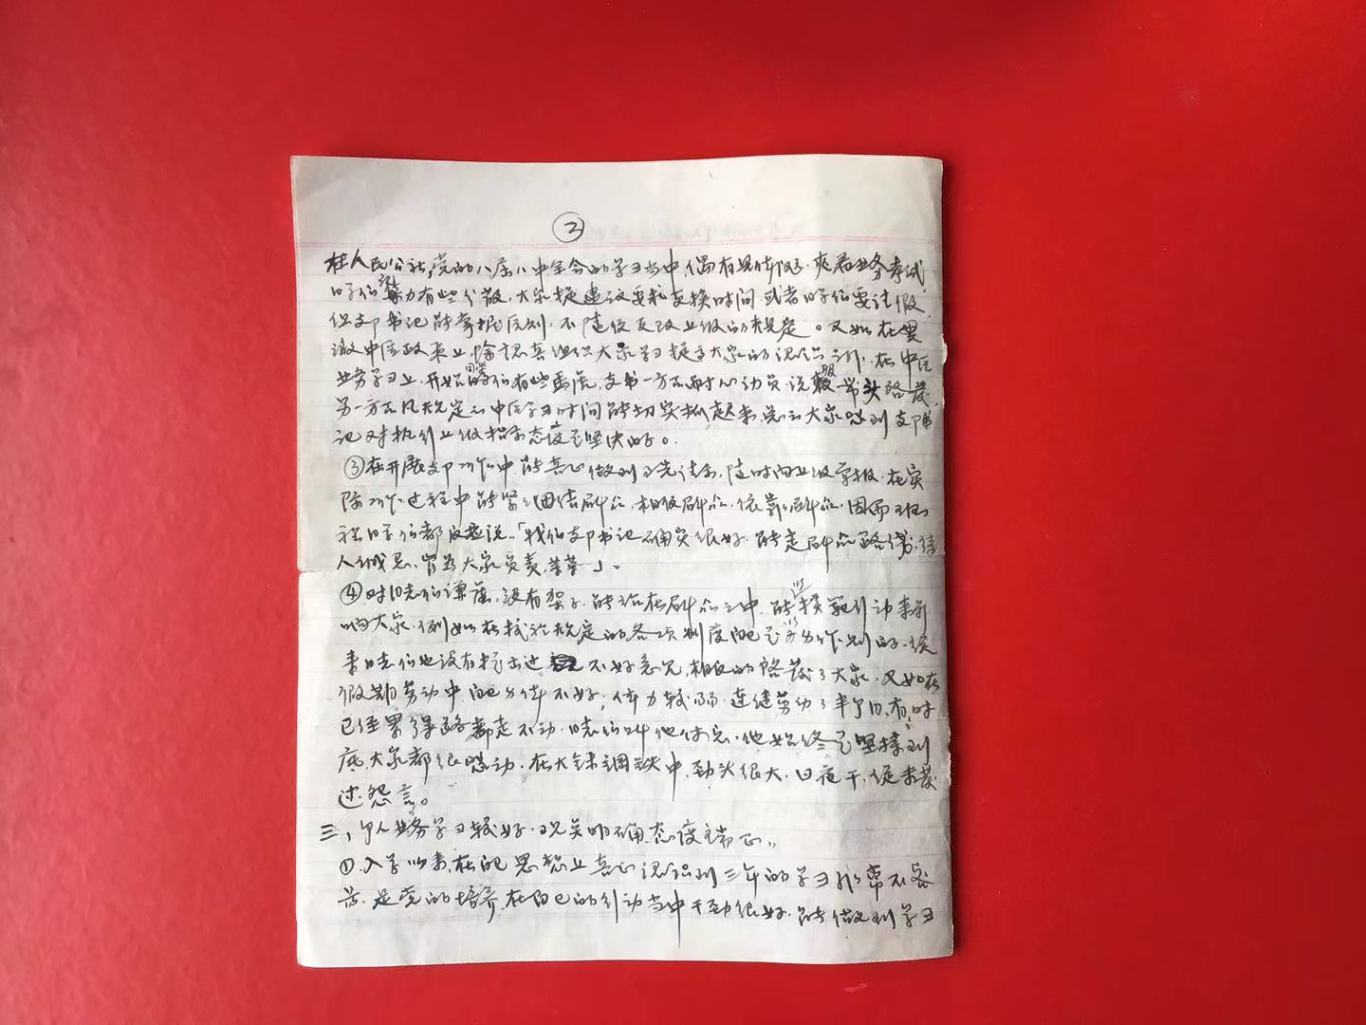 ②
在人民公社,党的八届八中全会的学习当中偶有具体阶段,夹着业务考试
同学们精力有些分散,大家提建议要求变换时间,或者同学们要请假,
但支部书记能掌握原则,不随便更改上级的规定。又如在贯
彻中医政策上,除认真组织大家学习提高大家的认识之外,在中医
业务学习上,开始时同学们有些重复,支书一方面耐心动员,说服带头启发
另一方面凡规定之中医学习时间能切实抓起来,这点大家感到支部书
记对执行上级指示态度是坚决的。
③在开展支部工作中,能真心做到了先请示,随时向上级汇报,在实
际工作过程中能紧紧团结群众,相信群众,依靠群众,因而班
社同学们都反应说「我们支部书记确实很好,能走群众路线,待
人诚恳,肯为大家负责,等等」。
④对同志们谦虚,没有架子,能站在群众之中,能以模范行动来影
响大家,例如在执行规定的各项制度自己是以身作则的,从
来同志们也没有提出过不好意见,相反的启发了大家,又如在
假期劳动中自己身体不好,体力较弱,连续劳动了半个月,有时
已经累得路都走不动,同志们叫他休息,他始终是坚持到
底,大家都很感动,在大炼钢铁中,劲头很大,日夜干,从未发
过怨言。
三,个人业务学习较好,观点明确,态度端正。
①入学以来,在自己思想上真正认识到三年的学习非常不容
易,是党的培养,在自己的行动当中干劲很好,能做到学习